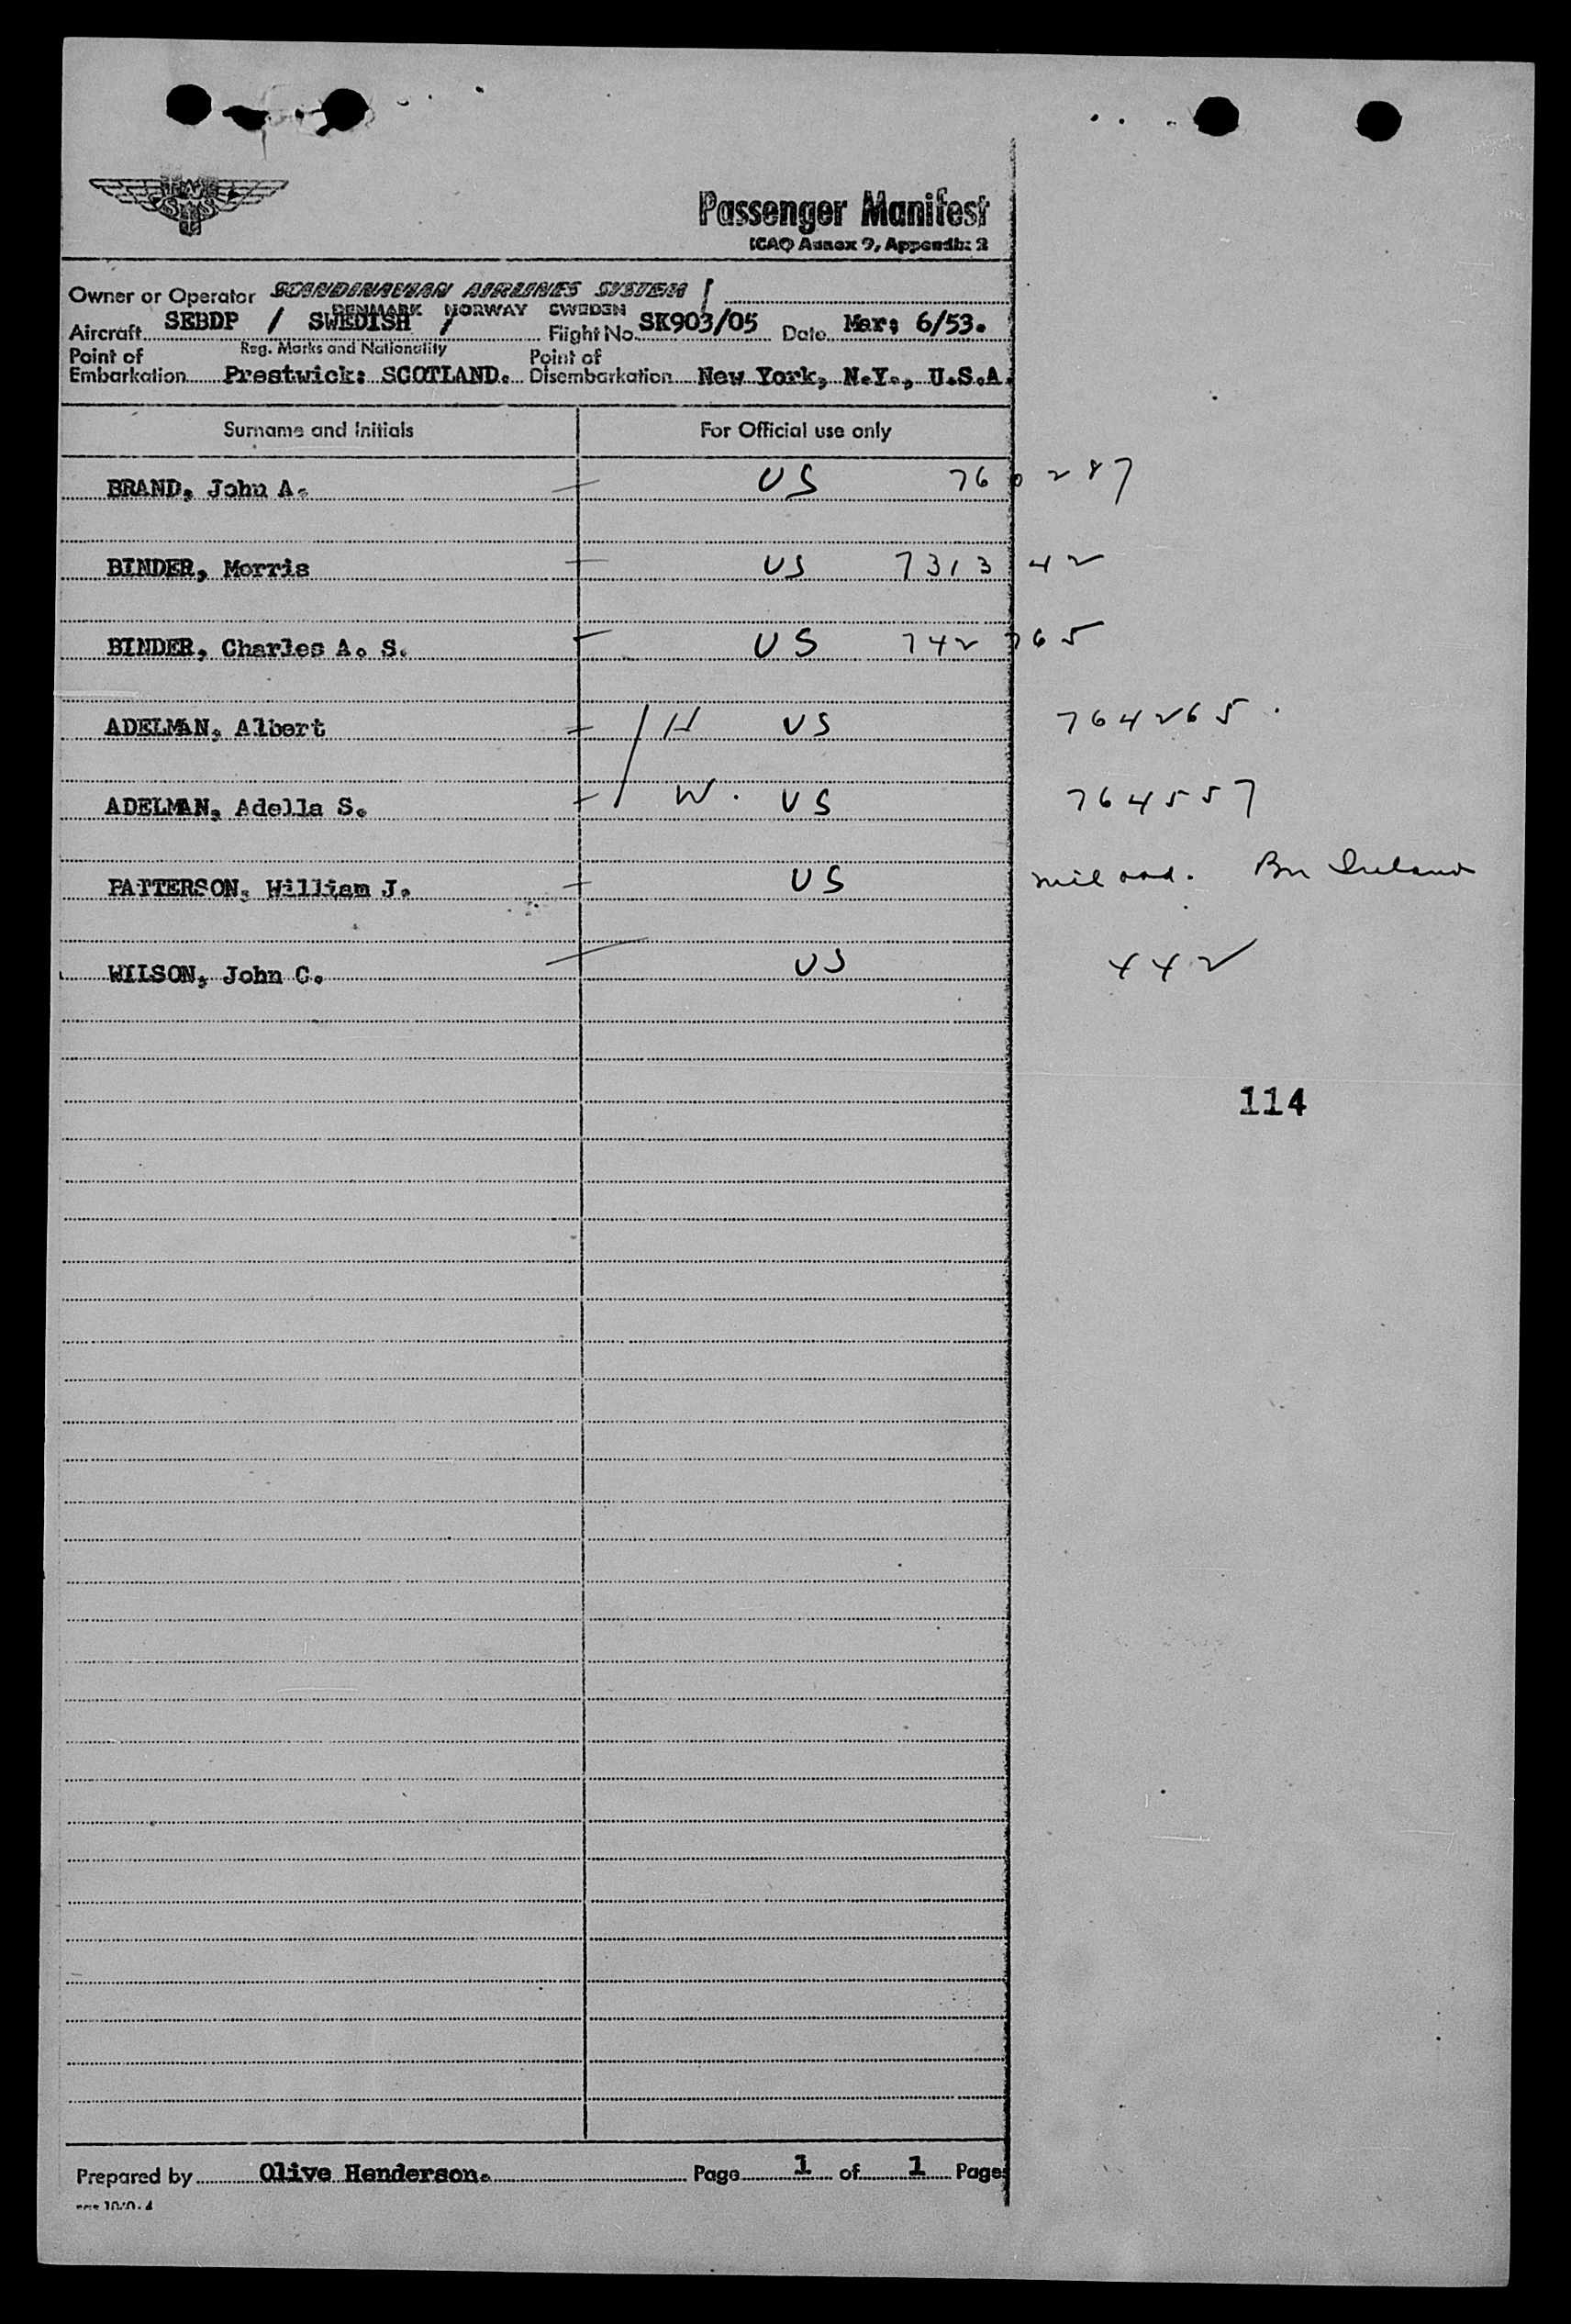 SAS
Passenger Manifest
ICAO Annex 9, Appendix 2
Owner or Operator SCANDINAVIAN AIRLINES SYSTEM /
DENMARK NORWAY SWEDEN
Aircraft SEBDP / SWEDISH / Flight No. SK903/05 Date Mar: 6/53.
Reg. Marks and Nationality
Point of Embarkation Prestwick: SCOTLAND. Point of Disembarkation New York, N.Y., U.S.A.
Surname and Initials For Official use only
BRAND, John A. US 760287
BINDER, Morris US 731342
BINDER, Charles A. S. US 742765
ADELMAN, Albert H US 764265.
ADELMAN, Adella S. W. US 764557
PATTERSON, William J. US mil ord. Bn Ireland
WILSON, John C. US 442
114
Prepared by Olive Henderson. Page 1 of 1 Pages